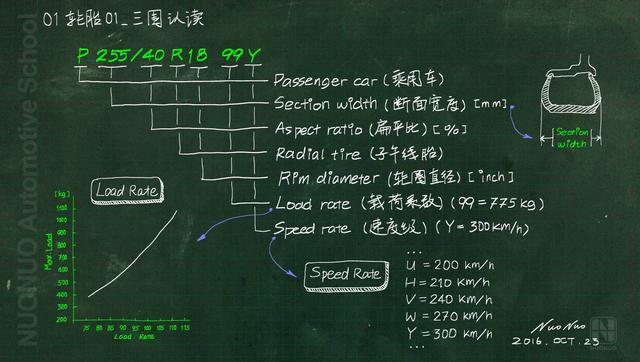 01 轮胎01_三围认读
P 255/40 R18 99Y
Passenger car (乘用车)
Section width (断面宽度) [mm]
Aspect ratio (扁平比) [%]
Radial tire (子午线胎)
Rim diameter (轮圈直径) [inch]
Load rate (载荷系数) (99=775kg)
Speed rate (速度级) (Y=300km/h)
Section
width
Load Rate
[kg]
1150
1100
1000
900
800
700
600
500
400
300
200
Max.Load
75 80 85 90 95 100 105 110 115
Load Rate
Speed Rate
...
U = 200 km/h
H = 210 km/h
V = 240 km/h
W = 270 km/h
Y = 300 km/h
...
NuoNuo
2016.OCT.23
NUONUO Automotive School